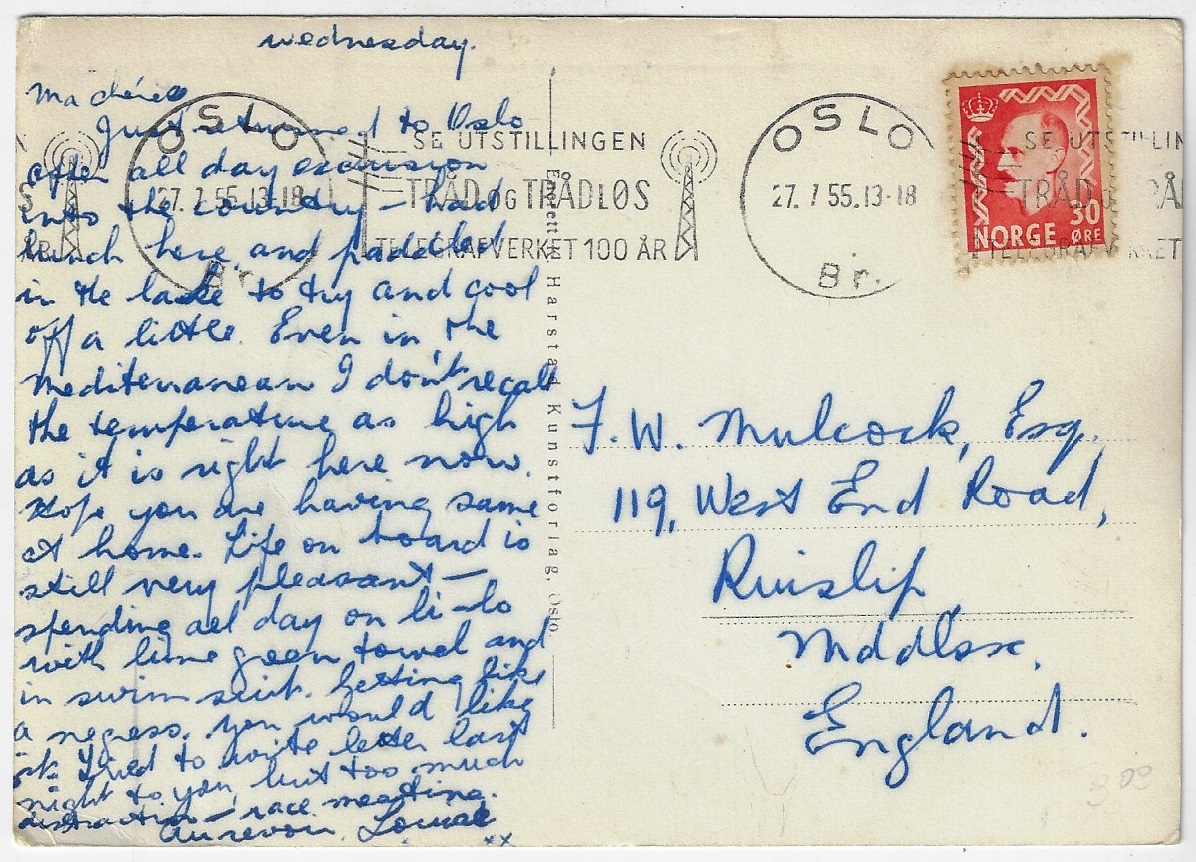 wednesday.
Ma chérie
Just returned to Oslo
after all day excursion
into the country – had
lunch here and paddled
in the lake to try and cool
off a little. Even in the
mediterranean I don't recall
the temperature as high
as it is right here now.
Hope you are having same
at home. Life on board is
still very pleasant –
spending all day on li-lo
with lime green towel and
in swim suit. Getting like
a negress. You would like
it. Tried to write letter last
night to you, but too much
distraction – race meeting.
Au revoir. Louise
xx
OSLO
27. 7 55.13-18
Br.
SE UTSTILLINGEN
TRÅD OG TRÅDLØS
TELEGRAFVERKET 100 ÅR
OSLO
27. 7 55.13-18
Br.
SE UTSTILLIN
TRÅD RÅ
TELEGRAFVERKET
S
ÅR
30
NORGE ØRE
Enerett Harstad Kunstforlag, Oslo
F. W. Mulcock, Esq.,
119, West End Road,
Ruislip,
Middlsx,
England.